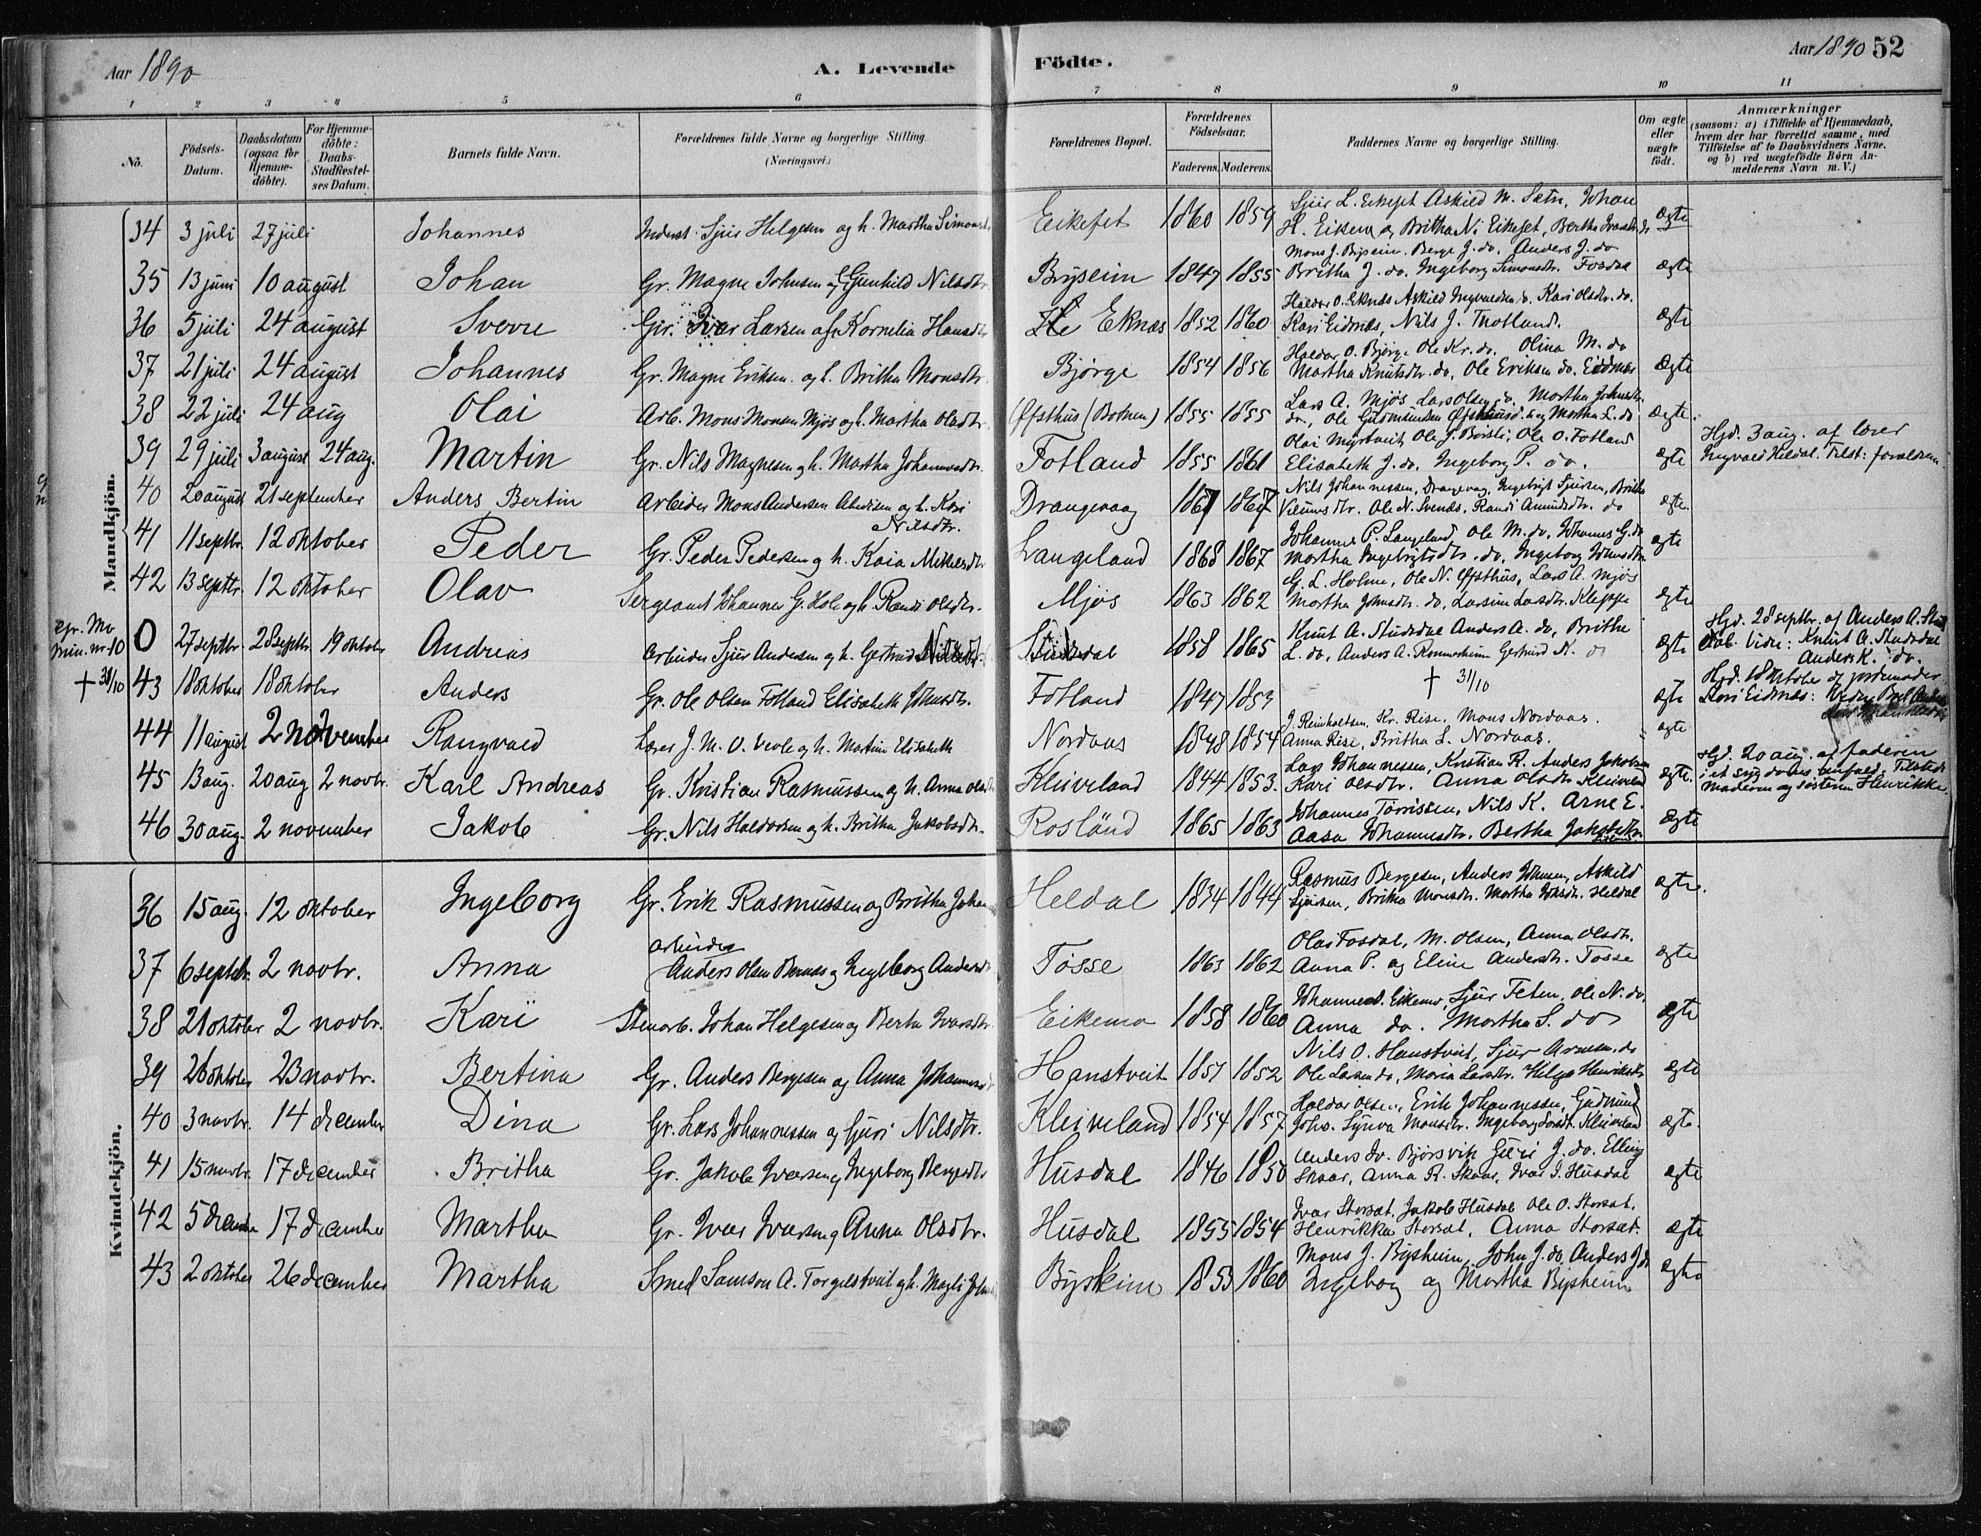 Aar 1890
A. Levende
Födte.
Aar 1890 52
1 2 3 4 5 6 7 8 9 10 11
Nö.
Födsels-Datum.
Daabsdatum (ogsaa for Hjemme-döbte).
For Hjemme-döbte: Daabs-Stadfæstel-ses Datum.
Barnets fulde Navn.
Forældrenes fulde Navne og borgerlige Stilling. (Næringsvei.)
Forældrenes Bopæl.
Forældrenes Födselsaar.
Faderens. Moderens.
Faddernes Navne og borgerlige Stilling.
Om ægte eller uægte födt.
Anmærkninger (saasom: a) i Tilfælde af Hjemmedaab, hvem der har forrettet samme, med Tilföielse af to Daabsvidners Navne. og b) ved uægtefödte Börn An-melderens Navn m. V.)
Mandkjön.
34 3 juli 27 juli Johannes Inderst Sjur Helgesen og h. Martha Simonsdtr Eikefet 1860 1859 Sjur L. Eikefet Askild M. Sætr, Johan H. Eikemo og Britha N. Eikefet, Bertha Ivarsdtr do ægte
35 13 juni 10 august Johan Gr. Magne Johnsen og Gunhild Nilsdtr Byseim 1847 1855 Mons J. Bysheim, Berge J. do, Anders J. do Britha J. do. Ingeborg Simonsdtr. Fosdal ægte
36 5 juli 24 august Sverre Gr. Ivar Larsen og Kornelia Hansdtr Eknæs 1852 1860 Haldor O. Eknæs Askild Ingvaldsen do. Kari Olsdtr. do. Kari Eidnæs, Nils J. Totland. ægte
37 21 juli 24 august Johannes Gr. Magne Eriksen og h. Britha Monsdtr. Bjørge 1854 1856 Haldor O. Bjørge Ole Kr. do. Olina M. do Martha Knutsdtr. do, Ole Eriksen do. Eidnæs ægte
38 22 juli 24 aug Olai Arb. Mons Monsen Mjøs og h. Martha Olsdtr. Øfsthus (Botnen) 1855 1855 Lars A. Mjøs, Lars Olsen do. Martha Johnsdtr. do, Ole Gudmundsen Øfsthus do og Martha L. do ægte.
39 29 juli 3 august 24 aug. Martin Gr. Nils Magnesen og h. Martha Johannesdtr. Fotland 1855 1861 Olai Myrtveit, Ole J. Børsli, Ole O. Fotland Elisabeth J. do. Ingeborg P. do. ægte Hjd. 3 aug. af lærer Ingvald Heldal. Tilst: forældrene
40 20 august 21 september Anders Bertin Arbeider Mons Andersen og h. Kari Nilsdtr. Drangevaag 1867 1867 Nils Johannessen, Drangevag, Ingebrigt Sjursen, Britha Ole N. Svenæs. Randi Amundsdtr. do ægte.
41 11 septbr. 12 oktober Peder Gr. Peder Pedersen og h. Kaia Mikkelsdtr Langeland 1868 1867 Johannes P. Langeland, Ole M. do. Johannes G. do Martha Ingebrigtsdtr. do, Ingeborg Johnsdtr. ægte
42 13 septbr. 12 oktober Olav Sergeant Johannes G. Hole og h. Randi Olsdtr. Mjøs 1863 1862 G. L. Holme, Ole N. Øfsthus, Lars A. Mjøs Martha Johnsdtr. do, Larsine Larsdtr. Kleppe ægte
0 27 septbr. 28 septbr. 19 oktober Andreas Arbeider Sjur Andersen og h. Gertrud Nilsdtr. Studsdal 1858 1865 Knut A. Studsdal Anders A. do, Brithe L. do, Anders A. Rommerheim Gertrud N. do ægte Hjd. 28 septbr. af Anders A. Stud dal. Vidn: Knut A. Studsdal Anders K. do.
† 31/10 43 18 oktober 18 oktober Anders Gr. Ole Olsen Fotland Elisabeth Johnsdtr. Fotland 1847 1859 † 31/10 ægte Hjd. 18 oktober af jordemoder Kari Eidnæs:
44 11 august 2 november Rangvald Lærer J. M. O. Veole og h. Martine Elisabeth Nordaas 1848 1854 J. Reinholtsen, Kr. Rise, Mons Nordaas. Anna Rise, Britha L. Nordaas. ægte
45 13 aug. 20 aug 2 novbr. Karl Andreas Gr. Kristian Rasmussen og h. Anna Olsdtr Kleiveland 1844 1853. Lars Johannessen, Kristian R. Anders Jakobsen Kari Olsdtr. Anna Olsdtr Kleiveland ægte. Hjd. 20 aug af faderen i et sygdoms tilfælde. Tilstede Moderen og søsteren Henrikke.
46 30 aug. 2 november Jakob Gr. Nils Haldorsen og h. Britha Jakobsdtr. Roslånd 1865 1863 Johannes Torrissen, Nils K. Arne E. Aasa Johannesdtr. Bertha Jakobsdtr. ægte
Kvindekjön.
36 15 aug. 12 oktober Ingeborg Gr. Erik Rasmussen og Britha Johan Heldal 1834 1844 Rasmus Bergesen, Anders Johnsen, Askild Sjursen, Britha Monsdtr. Martha Johsdtr. Heldal ægte.
37 6 septbr. 2 novbr. Anna arbeider Anders Olsen Bernæs og Ingeborg Andersdtr Tøsse 1863 1862 Olai Fosdal, M. Olsen, Anna Olsdtr. Anna P. og Eline Andersdtr. Tøsse ægte
38 21 oktober 2 novbr. Kari Stenarb. Johan Helgesen og Berta Ivarsdtr. Eikemo 1858 1860 Johannes Eikemo, Sjur Feten, Ole N. do. Anna do. Martha S. do ægte
39 26 oktober 23 novbr. Bertina Gr. Anders Bergesen og Anna Johannesd Hanstveit 1857 1852 Nils O. Hanstveit, Sjur Arnesen do Ole Larsen do, Maria Larsdtr. Helga Henriksdtr ægte
40 3 novbr. 14 december Dina Gr. Lars Johannessen og Guri Nilsdtr. Kleiveland 1854 1857 Haldor Olsen, Erik Johannessen, Gudmund Johs. Synva Monsdtr. Ingeborg Larsdtr. Kleiveland ægte.
41 15 novbr. 17 december Britha Gr. Jakob Iversen og Ingeborg Bergesdtr Husdal 1846 1850 Anders Iv. Bjørsvik Guri J. do. Elling Skaar, Anna R. Skaar, Ivar J. Husdal ægte
42 5 december 17 december Martha Gr. Ivar Ivarsen og Anna Olsdtr. Husdal 1855 1854 Ivar Storsæt, Jakob Husdal Ole O. Storsæt. Henrikka Storsæt, Anna Storsæt. ægte
43 2 oktober 26 december Martha Smed Samson A. Torgilstveit og h. Magli John Byskeim 1855 1860 Mons J. Bysheim, John J. do, Anders J. do Ingeborg og Martha Bysheim ægte